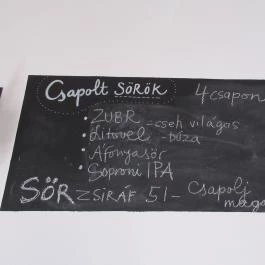 Csapolt SÖRÖK 4 csapon
• ZUBR = cseh világos
• Litovel - búza
• Áfonyasör
• Soproni IPA
SÖR ZSIRÁF 5l- Csapolj
maga